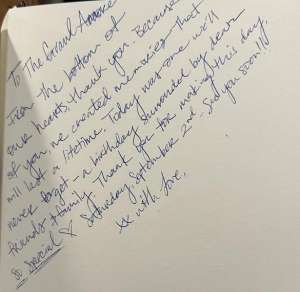 To The Grand
From the bottom of
our hearts, thank you. Because
of you, we created memories that
will last a lifetime. Today was one we'll
never forget - a birthday surrounded by dear
friends & family. Thank you for making this day
so special ♡ Saturday, September 2nd. See you soon!!!
xx with love,